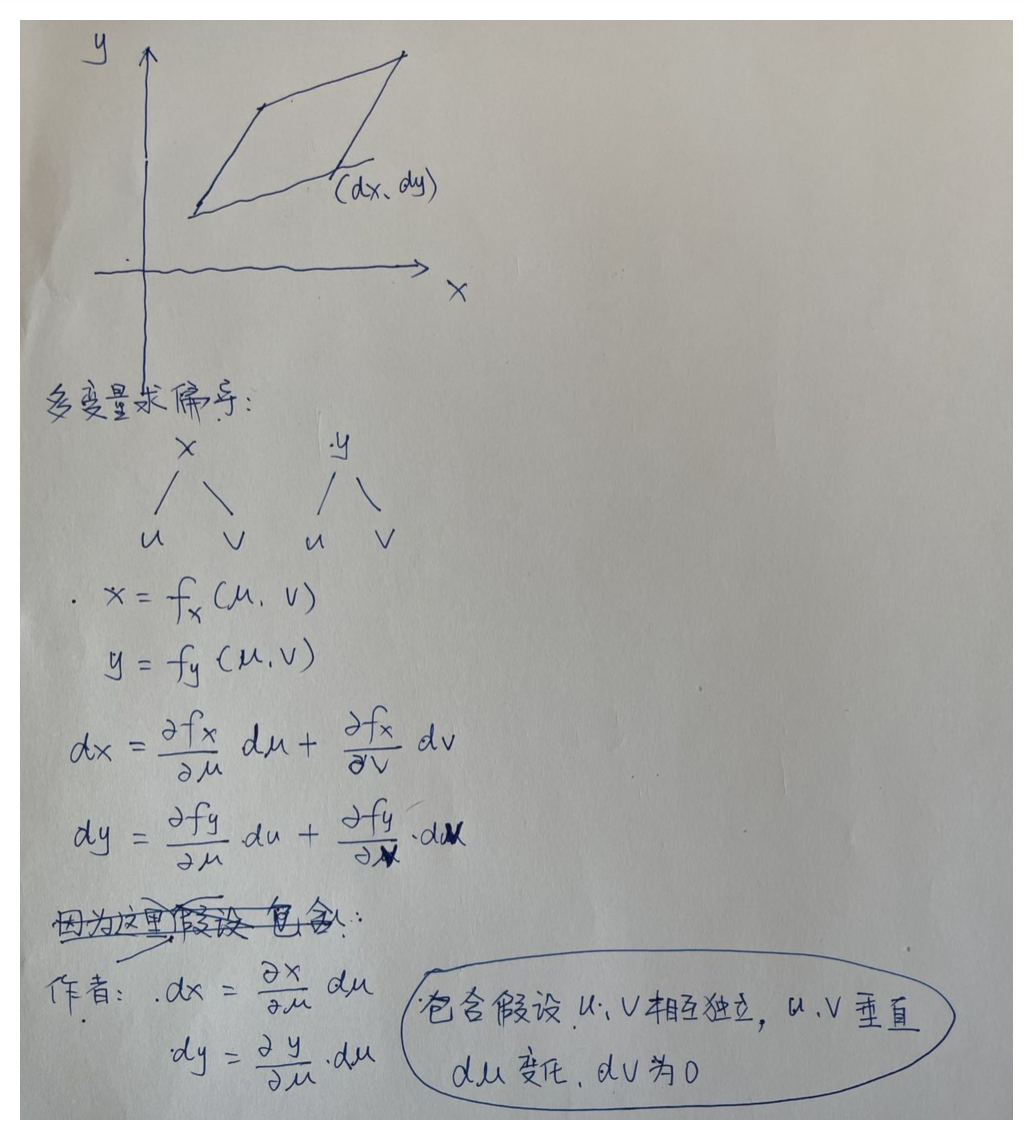 y
(dx、dy)
x
多变量求偏导:
x y
u v u v
x = fx (μ, v)
y = fy (μ, v)
dx = ∂fx/∂μ dμ + ∂fx/∂v dv
dy = ∂fy/∂μ ·du + ∂fy/∂v ·dv
因为这里假设包含:
作者: dx = ∂x/∂μ dμ
dy = ∂y/∂μ ·dμ
包含假设 u、v相互独立, u、v垂直
dμ 变化、dv为0